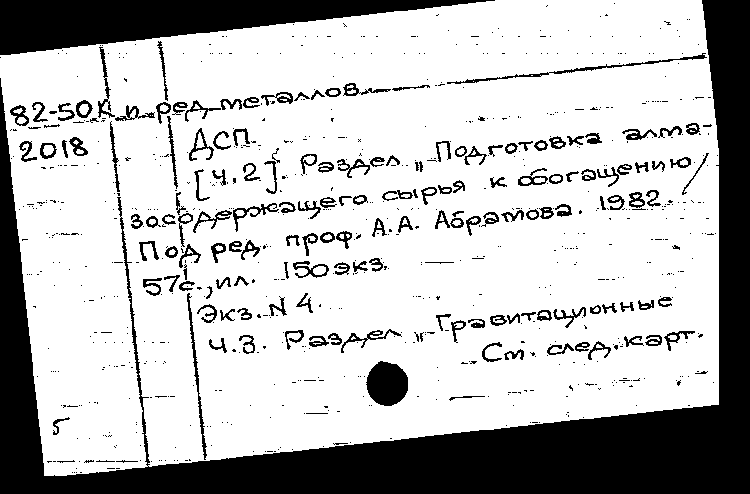 82-50К и ред. металлов.
2018 ДСП.
[ч.2]. Раздел „Подготовка алма-
зосодержащего сырья к обогащению
Под ред. проф. А.А. Абрамова. 1982. /
57с., ил. 150 экз.
Экз. N 4.
Ч.3. Раздел „Гравитационные
См. след. карт.
5